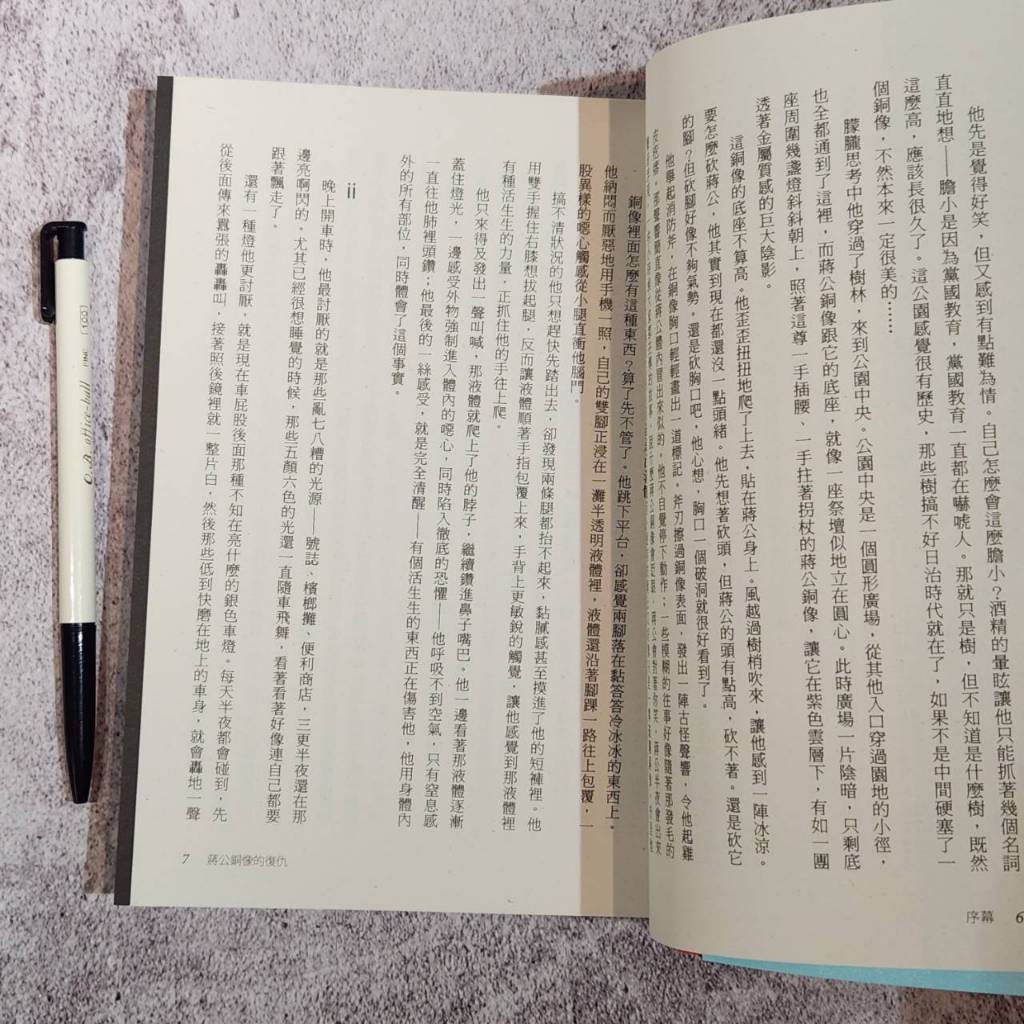 他先是覺得好笑，但又感到有點難為情。自己怎麼會這麼膽小？酒精的暈眩讓他只能抓著幾個名詞
直直地想——膽小是因為黨國教育，黨國教育一直都在嚇唬人。那就只是樹，但不知道是什麼樹，既然
這麼高，應該長很久了。這公園感覺很有歷史，那些樹搞不好日治時代就在了，如果不是中間硬塞了一
個銅像，不然本來一定很美的……
朦朧思考中他穿過了樹林，來到公園中央。公園中央是一個圓形廣場，從其他入口穿過園地的小徑，
也全都通到了這裡，而蔣公銅像跟它的底座，就像一座祭壇似地立在圓心。此時廣場一片陰暗，只剩底
座周圍幾盞燈斜斜朝上，照著這尊一手插腰、一手拄著拐杖的蔣公銅像，讓它在紫色雲層下，有如一團
透著金屬質感的巨大陰影。
這銅像的底座不算高。他歪歪扭扭地爬了上去，貼在蔣公身上。風越過樹梢吹來，讓他感到一陣冰涼。
要怎麼砍蔣公，他其實到現在都還沒一點頭緒。他先想著砍頭，但蔣公的頭有點高，砍不著。還是砍它
的腳？但砍腳好像不夠氣勢。還是砍胸口吧，他心想，胸口一個破洞就很好看到了。
他舉起消防斧，在銅像胸口輕輕畫出一道標記。斧刃擦過銅像表面，發出一陣古怪聲響，令他起雞
皮疙瘩。那聲響簡直像從蔣公體內冒出來似的，他不自覺停下動作；一些模糊的往事好像隨著那發毛的
序幕 6
銅像裡面怎麼有這種東西？算了先不管了。他跳下平台，卻感覺兩腳落在黏答答冷冰冰的東西上。
他納悶而厭惡地用手機一照，自己的雙腳正浸在一灘半透明液體裡，液體還沿著腳踝一路往上包覆，一
股異樣的噁心觸感從小腿直衝他腦門。
搞不清狀況的他只想趕快先踏出去，卻發現兩條腿都抬不起來，黏膩感甚至摸進了他的短褲裡。他
用雙手握住右膝想拔起腿，反而讓液體順著手指包覆上來，手背上更敏銳的觸覺，讓他感覺到那液體裡
有種活生生的力量，正抓住他的手往上爬。
他只來得及發出一聲叫喊，那液體就爬上了他的脖子，繼續鑽進鼻子嘴巴。他一邊看著那液體逐漸
蓋住燈光，一邊感受外物強制進入體內的噁心，同時陷入徹底的恐懼——他呼吸不到空氣，只有窒息感
一直往他肺裡頭鑽；他最後的一絲感受，就是完全清醒——有個活生生的東西正在傷害他，他用身體內
外的所有部位，同時體會了這個事實。
ii
晚上開車時，他最討厭的就是那些亂七八糟的光源——號誌、檳榔攤、便利商店，三更半夜還在那
邊亮啊閃的。尤其已經很想睡覺的時候，那些五顏六色的光還一直隨車飛舞，看著看著好像連自己都要
跟著飄走了。
還有一種燈他更討厭，就是現在車屁股後面那種不知在亮什麼的銀色車燈。每天半夜都會碰到，先
從後面傳來囂張的轟轟叫，接著照後鏡裡就一整片白，然後那些低到快磨在地上的車身，就會轟地一聲
7 蔣公銅像的復仇
O.B. office-ball